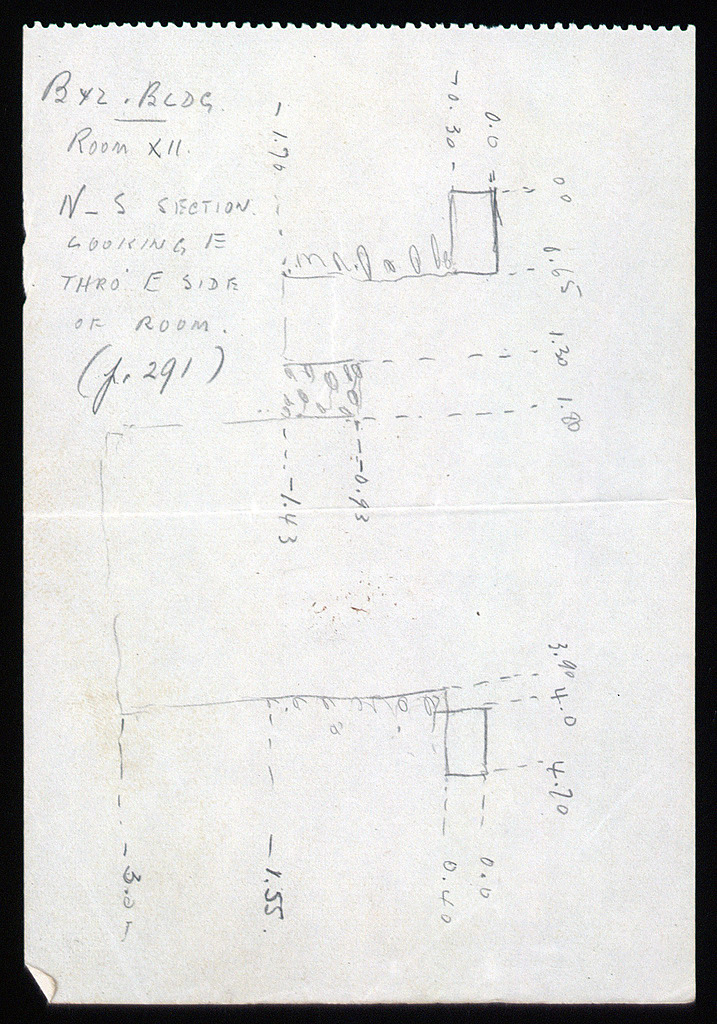 BYZ. BLDG.
ROOM XII.
N-S SECTION.
LOOKING E
THRO' E SIDE
OF ROOM.
(p. 291)
-1.70
-0.30
0.0
0.0
0.65
1.30
1.80
-0.93
-1.43
3.90
4.0
4.70
0.0
0.40
-1.55.